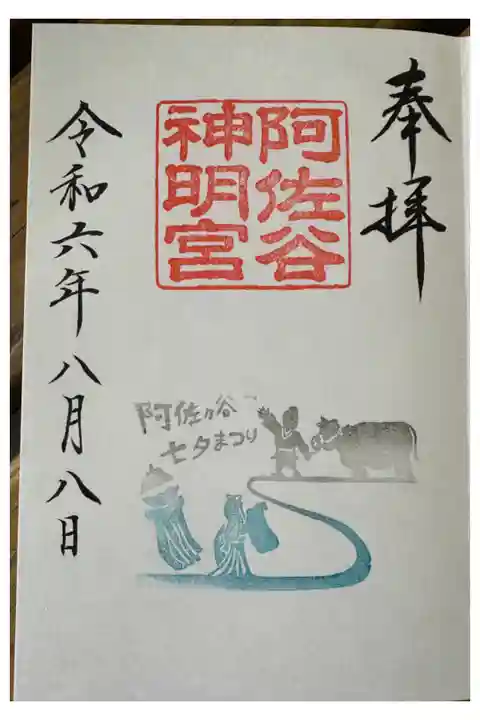 奉拝
阿佐谷
神明宮
阿佐ヶ谷
七夕まつり
令和六年八月八日